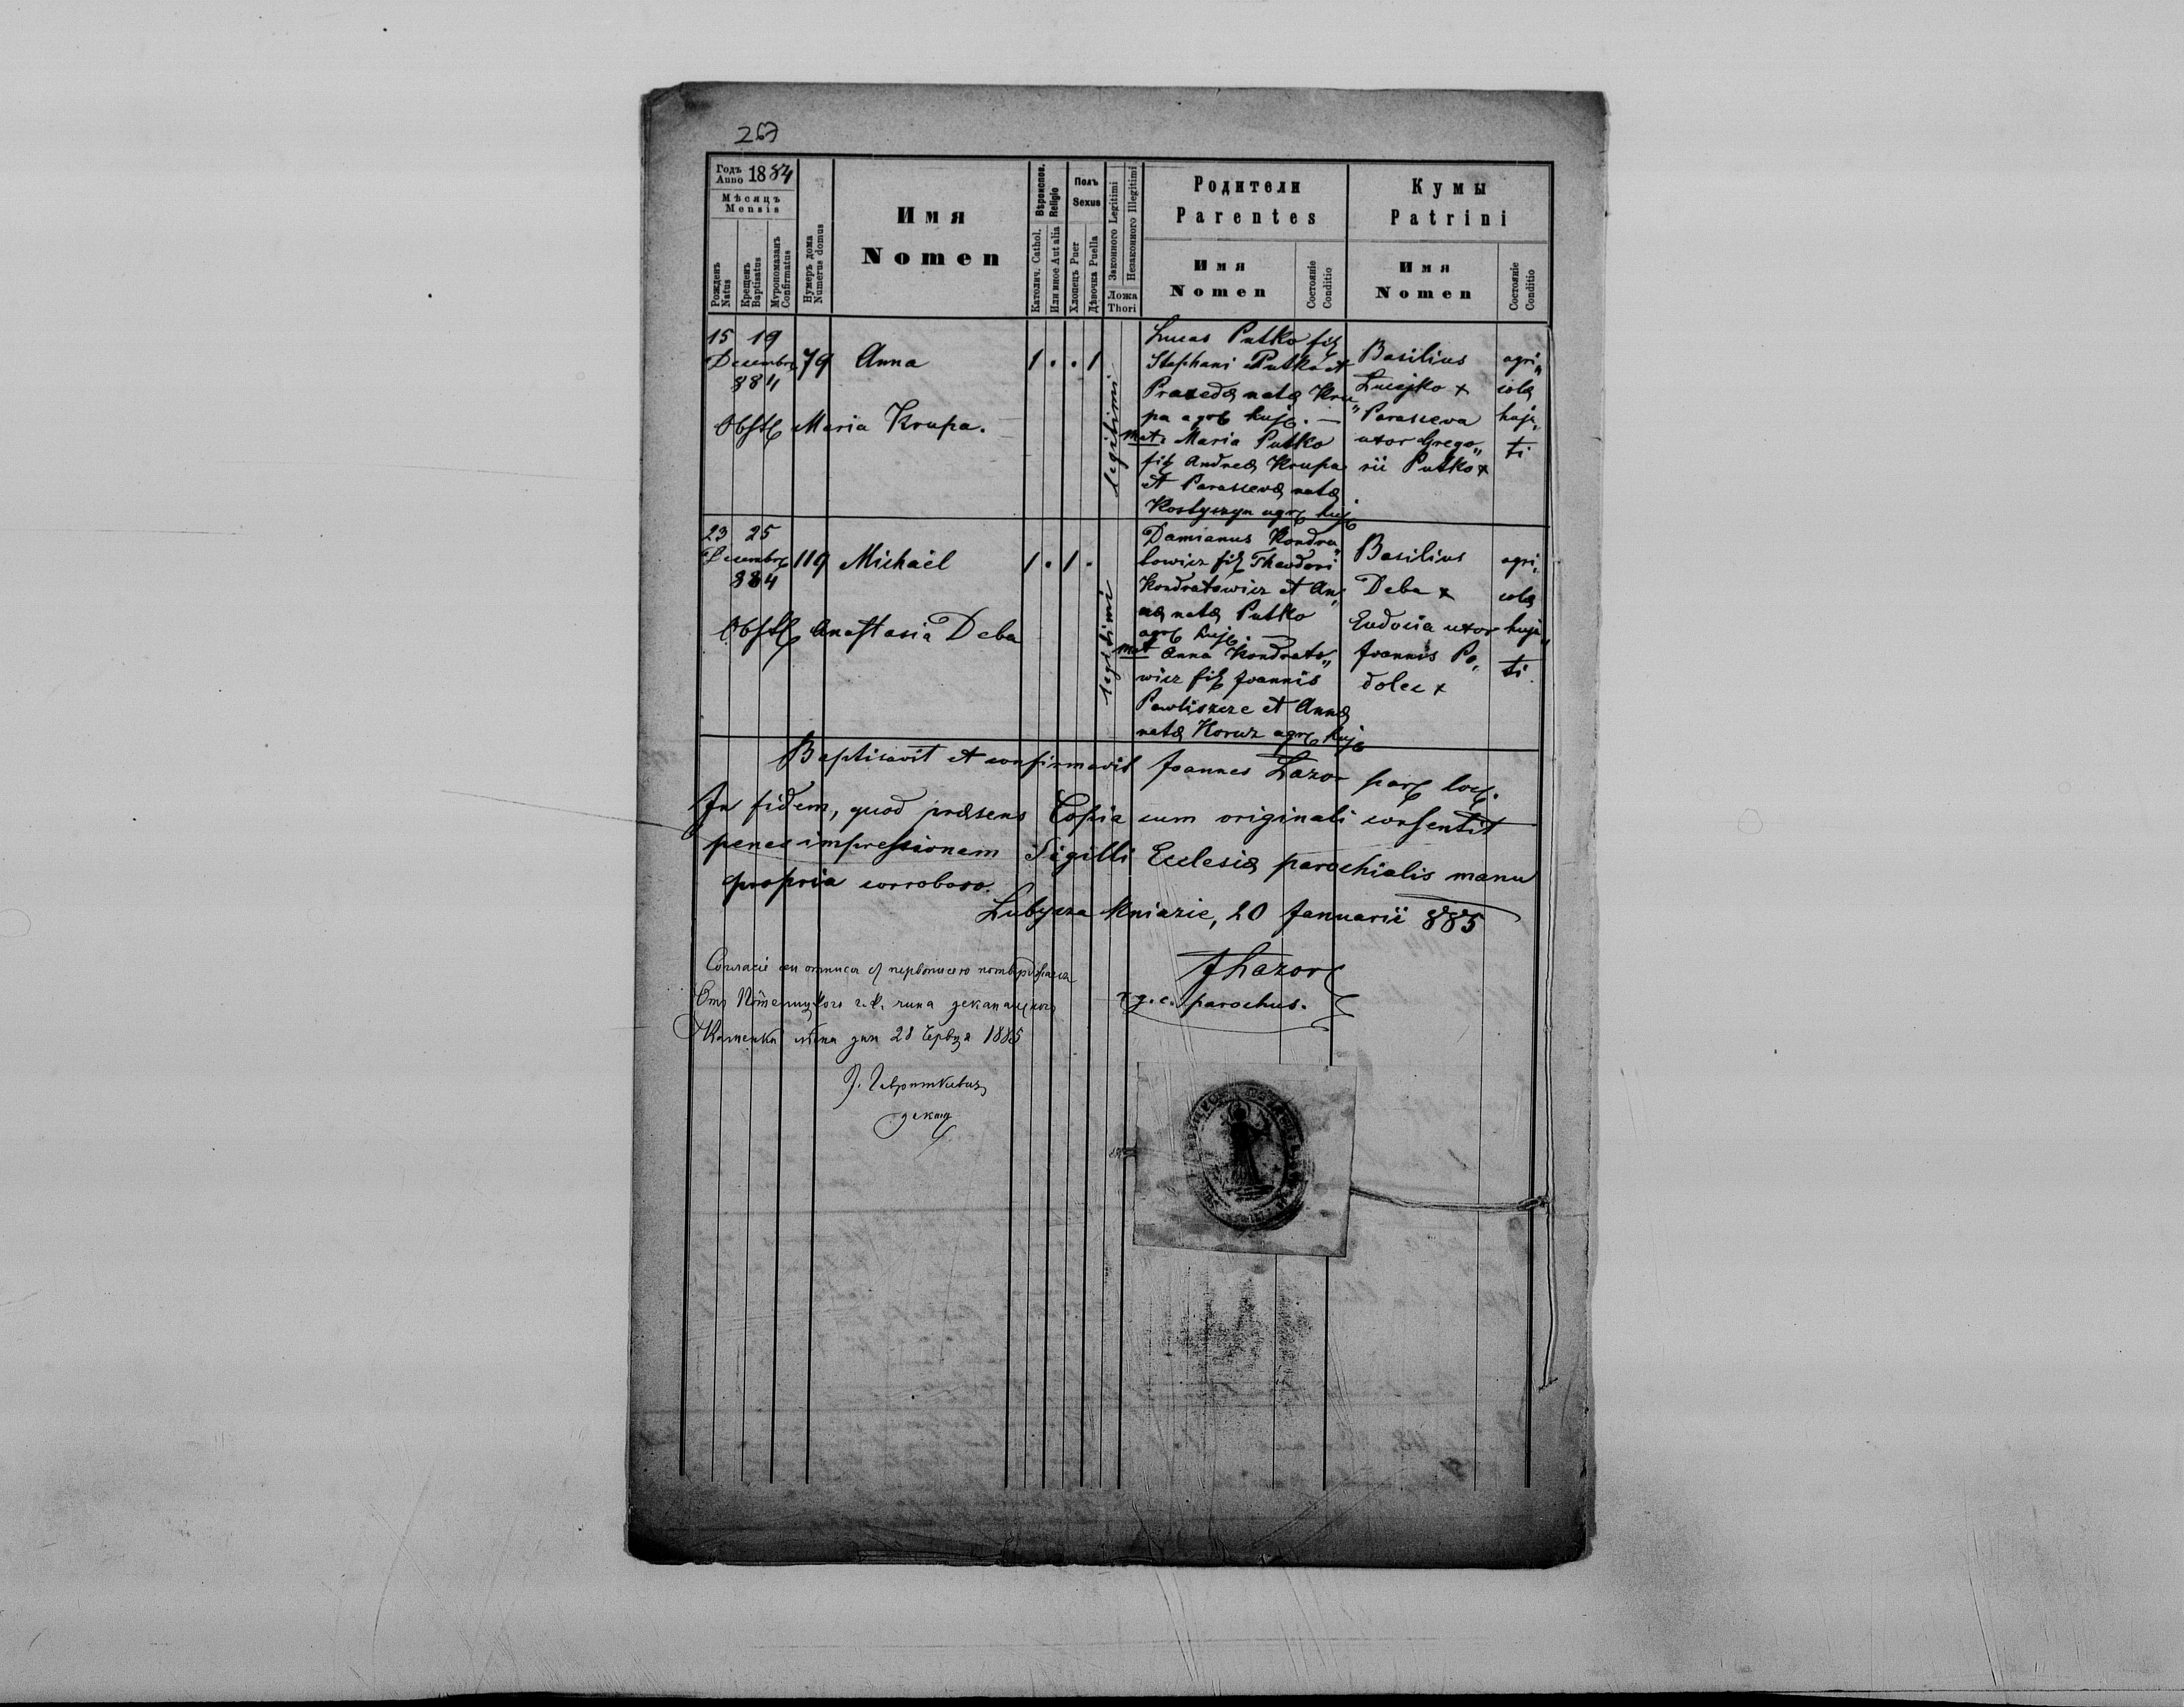 267
Годъ Anno 1884
Мѣсяцъ
Mensis
Рожденъ Natus
Крещенъ Baptisatus
Мѵропомазанъ Confirmatus
Нумеръ дома Numerus domus
Имя
Nomen
Вѣроиспов. Religio
Католич. Cathol.
Или иное Aut alia
Полъ
Sexus
Хлопецъ Puer
Дѣвочка Puella
Законного Legitimi
Незаконного Illegitimi
Ложа
Thori
Родители
Parentes
Имя
Nomen
Состояніе
Conditio
Кумы
Patrini
Имя
Nomen
Состояніе
Conditio
15 19
Decembr
884
79 Anna
1 . . 1
legitimi
Obst Maria Krupa.
Lucas Putko fil
Stephani Putko et
Praxedæ natæ Kru„
pa agr huj. —
Mat. Maria Putko
fil Andreæ Krupa
et Parascevæ natæ
Kostyszyn agr huj
Basilius
Lucejko +
Parasceva
uxor Grego„
rii Putko +
agri„
colæ
huja„
ti
23 25
Decembr
884
119 Michaël
1 . 1 .
legitimi
Obst Anastasia Deba
Damianus Kondra„
towicz fil Theodori
Kondratowicz et An„
næ natæ Putko
agr huj. —
Mat Anna Kondrato„
wicz fil Joannis
Pawliszcze et Annæ
natæ Korcz agr huj
Basilius
Deba +
Eudocia uxor
Joannis Po„
dolec +
agri„
colæ
huja„
ti.
Baptisavit et confirmavit Joannes Lazor par loc.
In fidem, quod præsens Copia cum originali consentit
penes impressionem Sigilli Ecclesiæ parochialis manu
propria corroboro.
Lubycza Kniazie, 20 Januarii 885
JLazor
r.g.c. parochus.
Согласіе сеи отписи съ первописею потверждается
Отъ Потелицкого г. к. чина деканального
Каменка дня 28 Червця 1885
декан